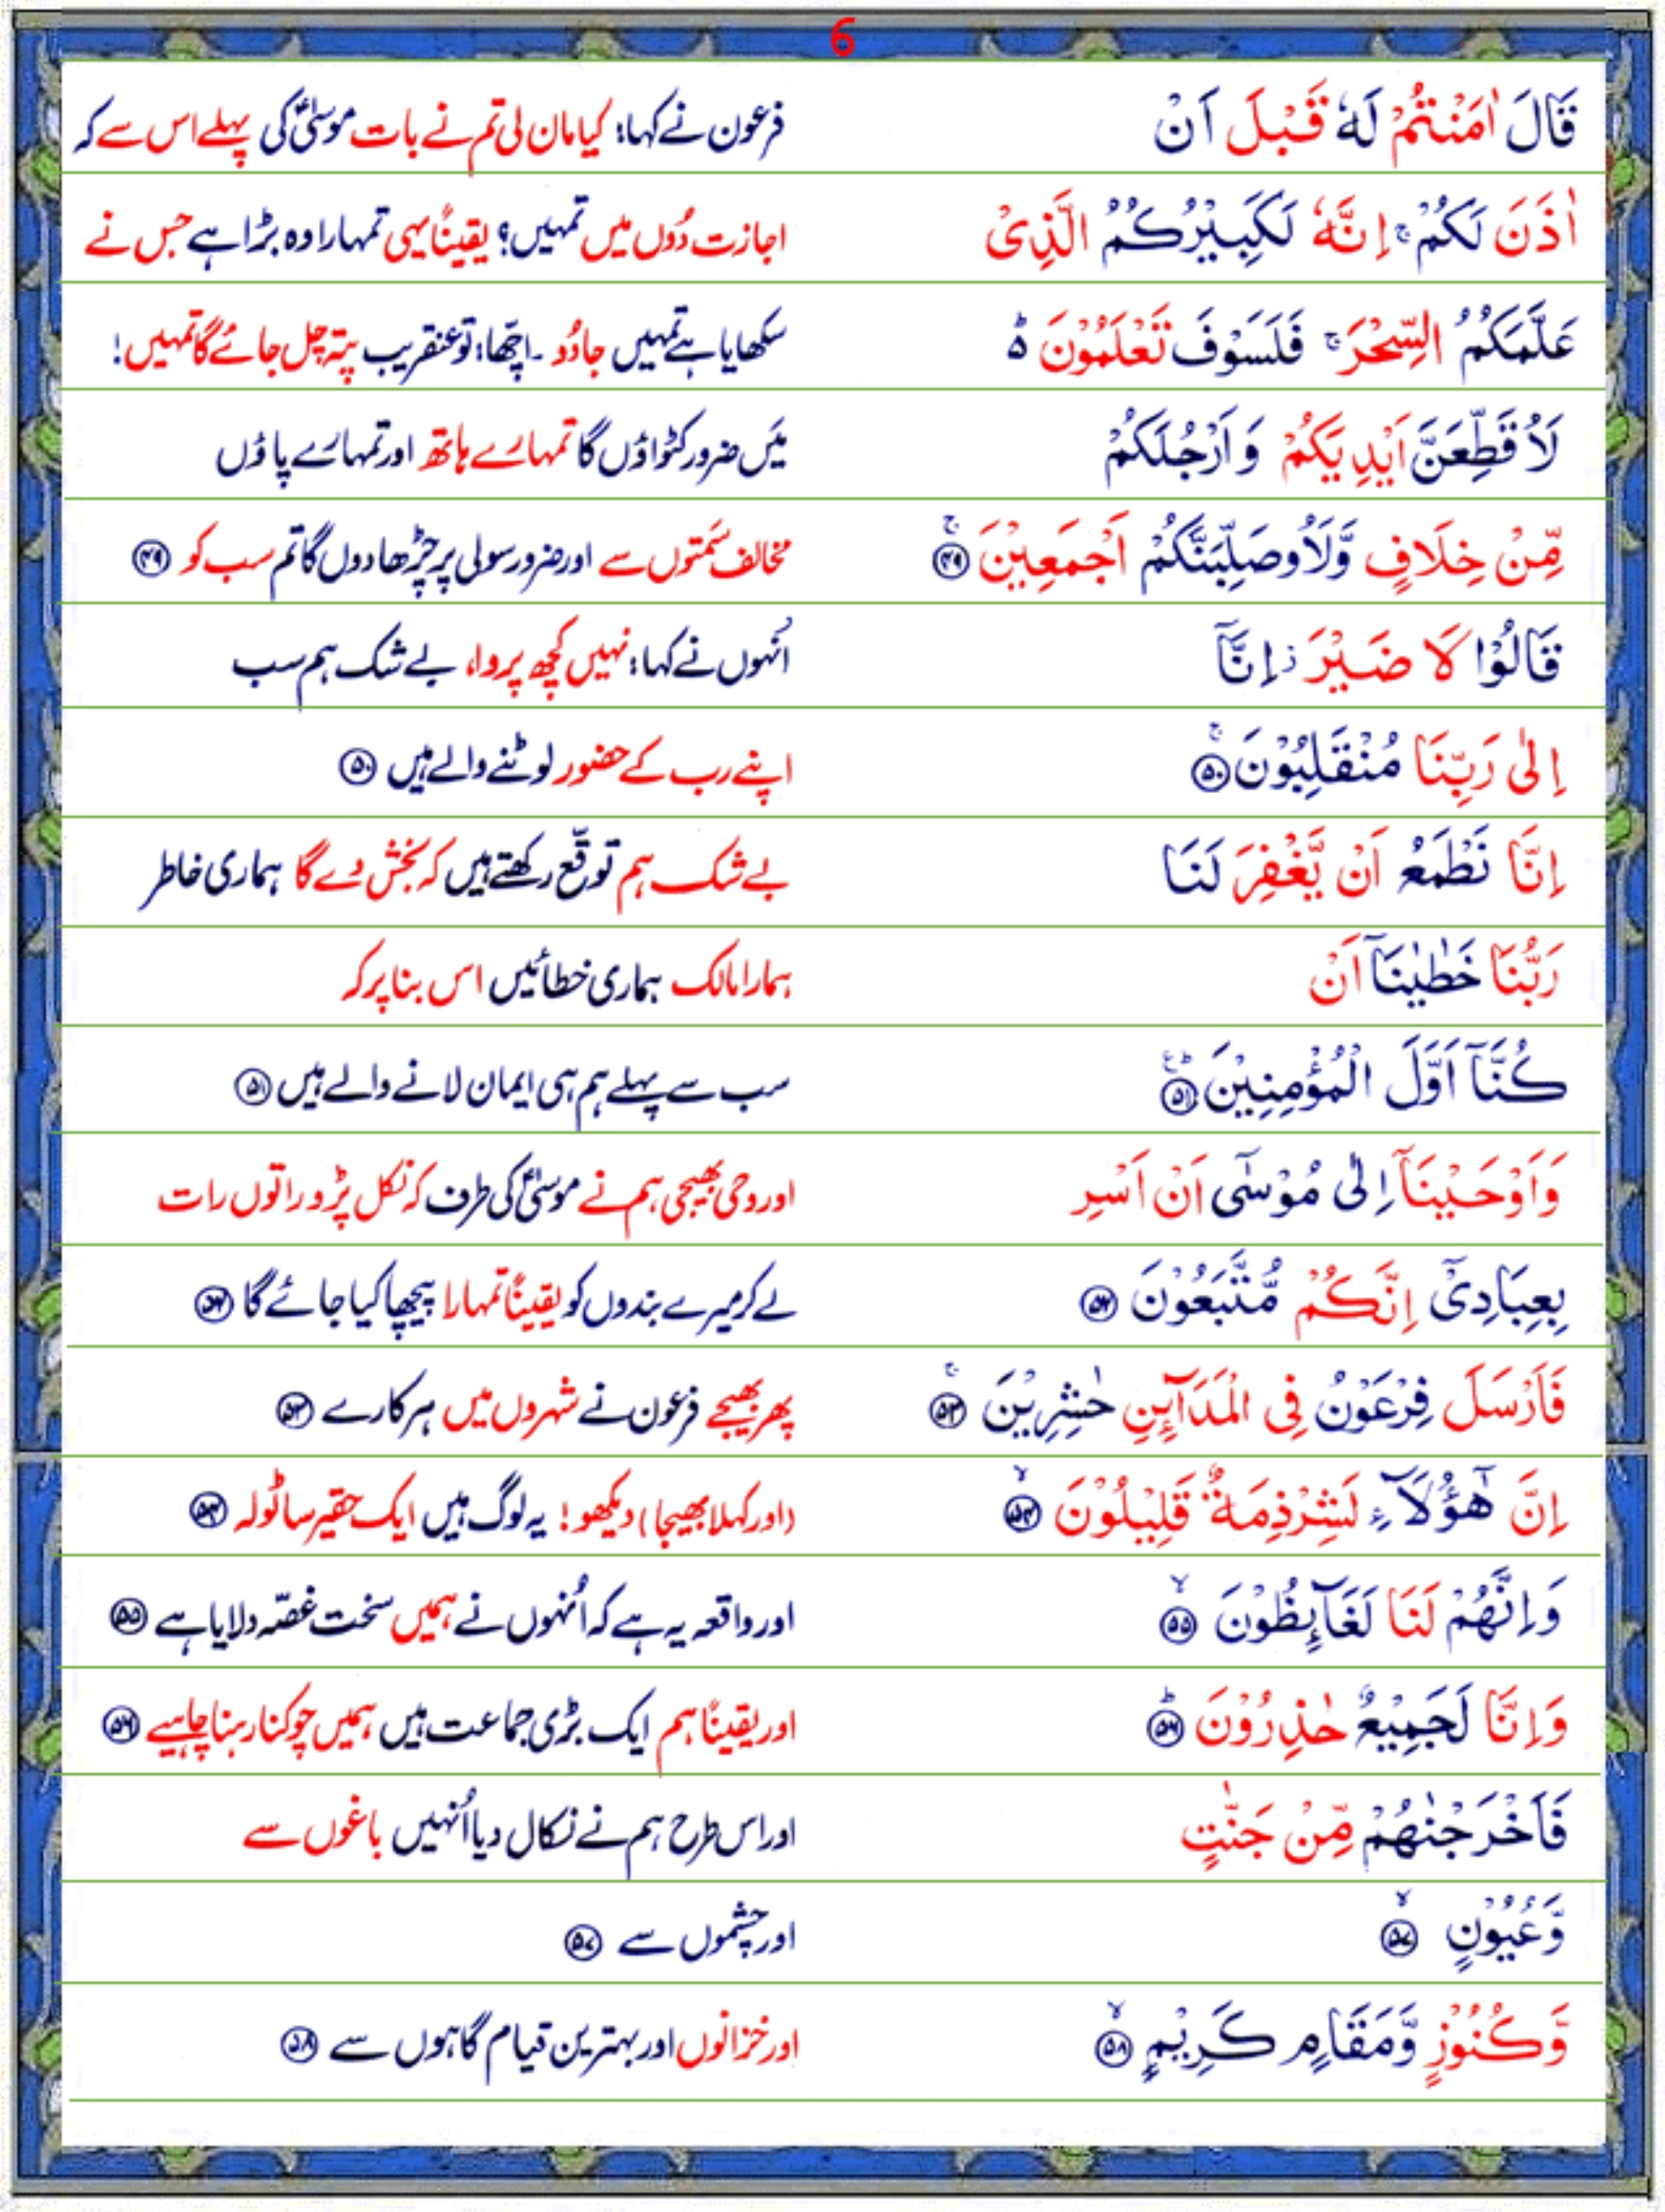 6
قَالَ اٰمَنْتُمْ لَهٗ قَبْلَ اَنْ
فرعون نے کہا؛ کیا مان لی تم نے بات موسیٰؑ کی پہلے اس سے کہ
اٰذَنَ لَكُمْ ۚ اِنَّهٗ لَكَبِيْرُكُمُ الَّذِىْ
اجازت دُوں میں تمہیں؟ یقیناً یہی تمہارا وہ بڑا ہے جس نے
عَلَّمَكُمُ السِّحْرَ ۚ فَلَسَوْفَ تَعْلَمُوْنَ ؕ
سکھایا ہے تمہیں جادُو ۔ اچّھا؛ تو عنقریب پتہ چل جائے گا تمہیں!
لَاُقَطِّعَنَّ اَيْدِيَكُمْ وَ اَرْجُلَكُمْ
میَں ضرور کٹواؤں گا تمہارے ہاتھ اور تمہارے پاؤں
مِّنْ خِلَافٍ وَّلَاُوصَلِّبَنَّكُمْ اَجْمَعِيْنَ ۚ ﴿۴۹﴾
مخالف سَمتوں سے اور ضرور سولی پر چڑھا دوں گا تم سب کو ﴿۴۹﴾
قَالُوْا لَا ضَيْرَ ۡ اِنَّاۤ
اُنہوں نے کہا؛ نہیں کچھ پروا، بے شک ہم سب
اِلٰى رَبِّنَا مُنْقَلِبُوْنَ ۚ ﴿۵۰﴾
اپنے رب کے حضور لوٹنے والے ہیں ﴿۵۰﴾
اِنَّا نَطْمَعُ اَنْ يَّغْفِرَ لَنَا
بے شک ہم توقّع رکھتے ہیں کہ بخش دے گا ہماری خاطر
رَبُّنَا خَطٰيٰنَاۤ اَنْ
ہمارا مالک ہماری خطائیں اس بنا پر کہ
كُنَّاۤ اَوَّلَ الْمُؤْمِنِيْنَ ؕ ع ﴿۵۱﴾
سب سے پہلے ہم ہی ایمان لانے والے ہیں ﴿۵۱﴾
وَاَوْحَيْنَاۤ اِلٰى مُوْسٰٓى اَنْ اَسْرِ
اور وحی بھیجی ہم نے موسیٰؑ کی طرف کہ نکل پڑو راتوں رات
بِعِبَادِىْۤ اِنَّكُمْ مُّتَّبَعُوْنَ ﴿۵۲﴾
لے کر میرے بندوں کو یقیناً تمہارا پیچھا کیا جائے گا ﴿۵۲﴾
فَاَرْسَلَ فِرْعَوْنُ فِى الْمَدَآئِنِ حٰشِرِيْنَ ۚ ﴿۵۳﴾
پھر بھیجے فرعون نے شہروں میں ہرکارے ﴿۵۳﴾
اِنَّ هٰٓؤُلَآءِ لَشِرْذِمَةٌ قَلِيْلُوْنَ ۙ ﴿۵۴﴾
(اور کہلا بھیجا) دیکھو! یہ لوگ ہیں ایک حقیر سا ٹولہ ﴿۵۴﴾
وَاِنَّهُمْ لَنَا لَغَآئِظُوْنَ ۙ ﴿۵۵﴾
اور واقعہ یہ ہے کہ اُنہوں نے ہمیں سخت غصّہ دلایا ہے ﴿۵۵﴾
وَاِنَّا لَجَمِيْعٌ حٰذِرُوْنَ ؕ ﴿۵۶﴾
اور یقیناً ہم ایک بڑی جماعت ہیں ہمیں چوکنا رہنا چاہیے ﴿۵۶﴾
فَاَخْرَجْنٰهُمْ مِّنْ جَنّٰتٍ
اور اس طرح ہم نے نکال دیا اُنہیں باغوں سے
وَّعُيُوْنٍ ۙ ﴿۵۷﴾
اور چشموں سے ﴿۵۷﴾
وَّكُنُوْزٍ وَّمَقَامٍ كَرِيْمٍ ۙ ﴿۵۸﴾
اور خزانوں اور بہترین قیام گاہوں سے ﴿۵۸﴾